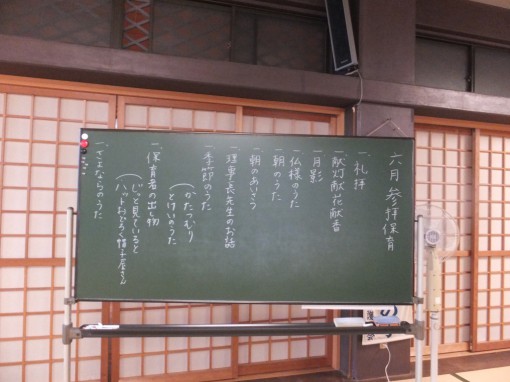 六月 参拝保育
一、礼拝
一献灯献花献香
一月影
一仏様のうた
一朝のうた
一朝のあいさつ
一理事長先生のお話
一季節のうた
（かたつむり
とけいのうた
一、保育者の出し物
（じっと見ていると
ハットおどろく帽子屋さん
一、さよならのうた